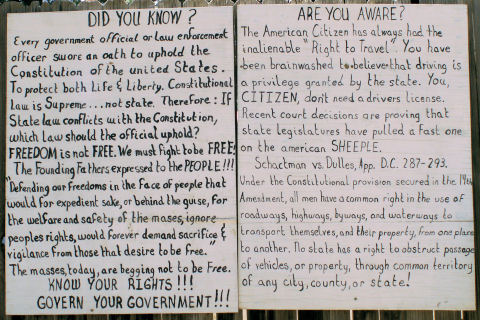 DID YOU KNOW?
Every government official or law enforcement
officer swore an oath to uphold the
Constitution of the united States.
To protect both Life & Liberty. Constitutional
law is Supreme...not state. Therefore: If
State law conflicts with the Constitution,
which Law should the official uphold?
FREEDOM is not FREE. We must fight to be FREE!
The Founding Fathers expressed to the PEOPLE!!!
"Defending our freedoms in the face of people that
would for expedient sake, or behind the guise, for
the welfare and safety of the masses, ignore
peoples rights, would forever demand sacrifice &
vigilance from those that desire to be free."
The masses, today, are begging not to be Free.
KNOW YOUR RIGHTS!!!
GOVERN YOUR GOVERNMENT!!!
ARE YOU AWARE?
The American Citizen has always had the
inalienable "Right to Travel". You have
been brainwashed to believe that driving is
a privilege granted by the state. You,
CITIZEN, don't need a drivers license.
Recent court decisions are proving that
state legislatures have pulled a fast one
on the american SHEEPLE.
Schactman vs. Dulles, App. D.C. 287-293.
Under the Constitutional provision secured in the 14th
Amendment, all men have a common right in the use of
roadways, highways, byways, and waterways to
transport themselves, and their property, from one place
to another. No state has a right to obstruct passage
of vehicles, or property, through common territory
of any city, county, or state!